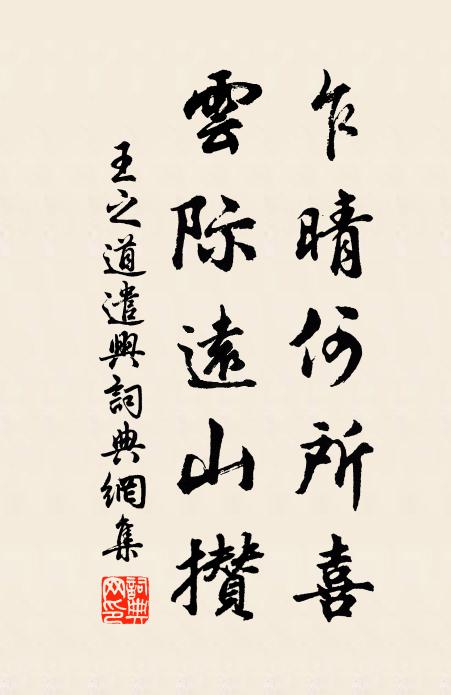 乍晴何所喜
雲际遠山攅
王之道遣興詞典網集
詞典網印